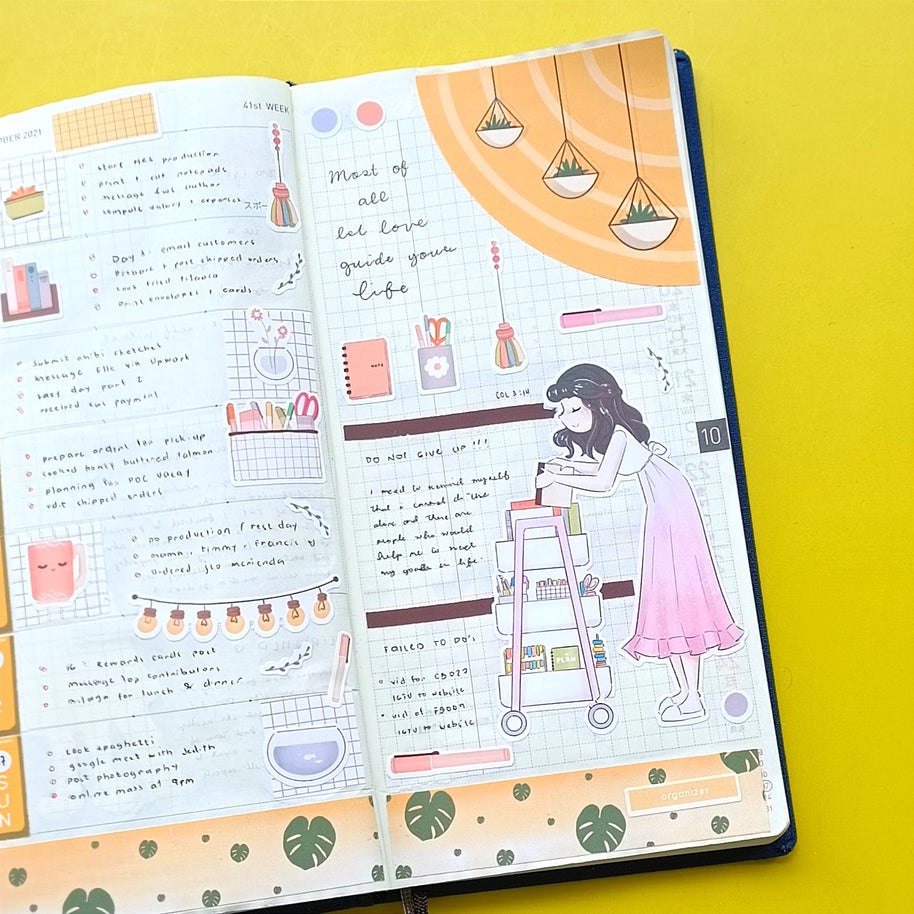 BER 2021
41st WEEK
start
production
print + cut notepads
message author
compute salary + expenses
スポー
Day 3: email customers
Prepare + post shipped orders
cook fried tilapia
Print envelopes + cards
submit chibi sketches
message Elle via Upwork
easy day part 2
received payment
prepare orders for pick-up
cooked honey buttered salmon
planning for vacay
edit shipped orders
no production / rest day
mama, timmy, francis
ordered jco merienda
rewards cards post
message top contributors
for lunch & dinner
7
SUN
cook spaghetti
google meet with Judith
post photography
online mass at 9pm
Most of
all
let love
guide your
life
NOTE
COL 3:14
DO NOT GIVE UP!!!
I need to remind myself
that I cannot do this
alone and there are
people who would
help me to meet
my goals in life.
PLAN
FAILED TO DO's
vid for CB023
IGTV to website
vid of FB009
IGTV to website
10
organizer